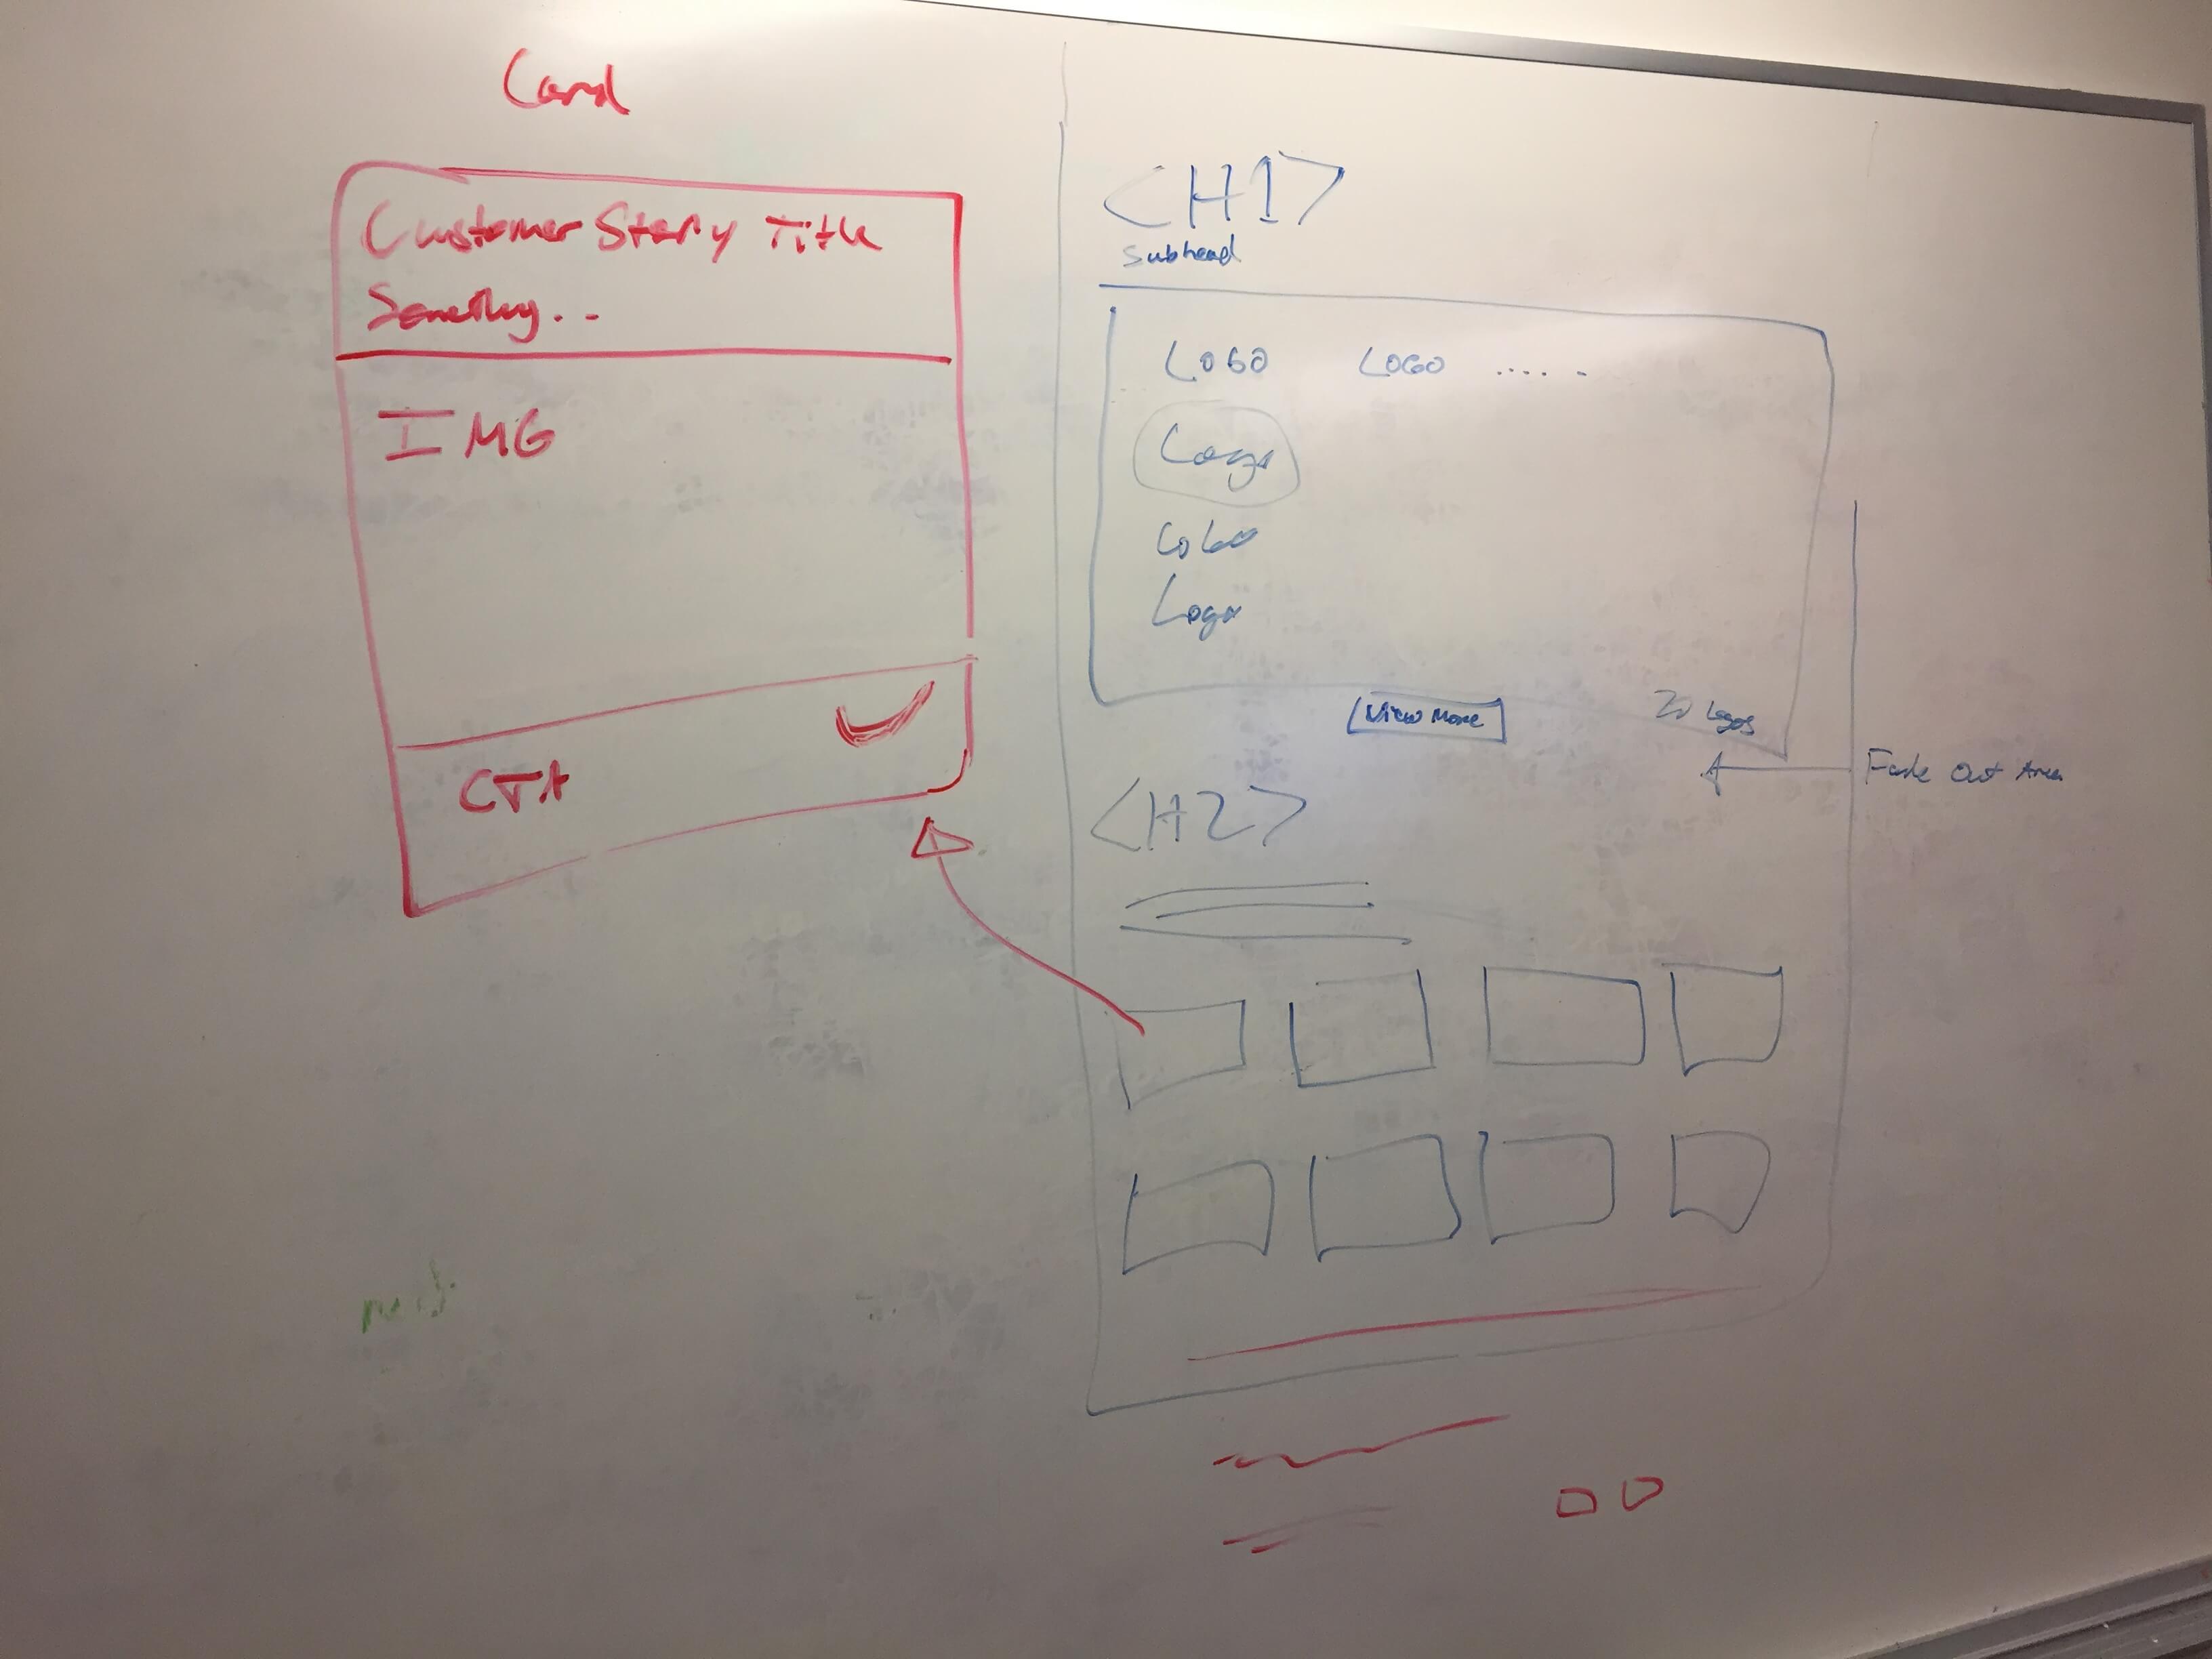 Card
Customer Story Title
Something..
IMG
CTA
<H1>
Subhead
LOGO LOGO ..... -
Logo
LOGO
Logo
View More
20 Logos
Fade Out Area
<H2>